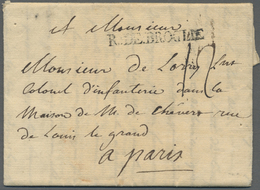 A Monsieur
R. DE. BRUXELLE
12
Monsieur De Lorry Lnt
Colonel d'infanterie dans la
Maison de M. de Chevert rue
de Louis le grand
a paris